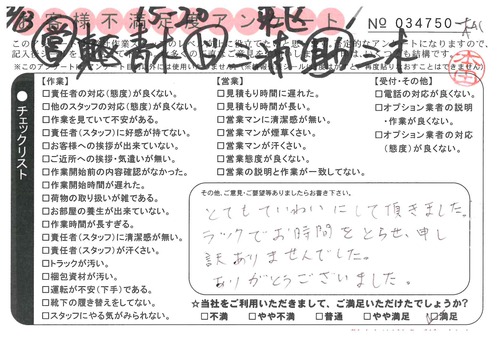 お客様不満足度アンケート
No 034750
チェックリスト
【作業】
□責任者の対応(態度)が良くない。
□他のスタッフの対応(態度)が良くない。
□作業を見ていて不安がある。
□責任者(スタッフ)に好感が持てない。
□お客様への挨拶が出来ていない。
□ご近所への挨拶・気遣いが無い。
□作業開始前の内容確認がなかった。
□作業開始時間が遅れた。
□荷物の取り扱いが雑である。
□お部屋の養生が出来ていない。
□作業時間が長すぎる。
□責任者(スタッフ)に清潔感が無い。
□責任者(スタッフ)が汗くさい。
□トラックが汚い。
□梱包資材が汚い。
□運転が不安(下手)である。
□靴下の履き替えをしてない。
□スタッフにやる気がみられない。
【営業】
□見積もり時間に遅れた。
□見積もり時間が長い。
□営業マンに清潔感が無い。
□営業マンが煙草くさい。
□営業マンが汗くさい。
□営業態度が良くない。
□営業の説明と作業が一致してない。
【受付・その他】
□電話の対応が良くない。
□オプション業者の説明
・作業が良くない。
□オプション業者の対応
(態度)が良くない。
その他、ご意見・ご要望等ありましたらお書き下さい。
とてもていねいにして頂きました。
ラックでお時間をとらせ、申し
訳ありませんでした。
ありがとうございました。
☆当社をご利用いただきまして、ご満足いただけたでしょうか?
□不満 □やや不満 □普通 □やや満足 ☑満足